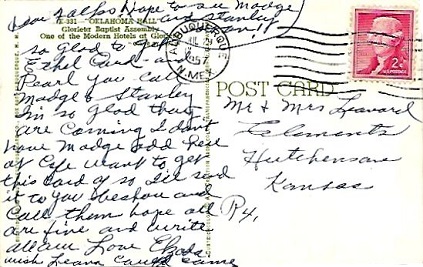 Dear Ralph hope to see Madge
and Stanley
K-331 — OKLAHOMA HALL
Glorieta Baptist Assembly
One of the Modern Hotels at Glorieta
so Glad to get
Ethel Card and
Pearl you Call
Madge & Stanley
Im so Glad they
are Coming I don't
have Madge add Rese
at Cafe want to get
this Card off so I'll send
it to you
Call them hope all
are fine and write
all
wish Leana could same
ALBUQUERQUE
N. MEX.
1957
2¢
POST CARD
Mr & Mrs Leonard
Clements
Hutchenson
Kansas
R4,